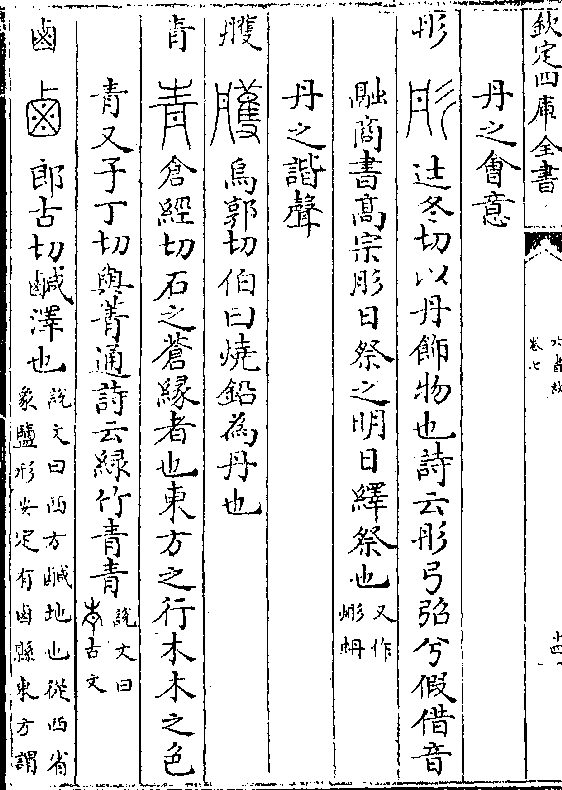 欽定四庫全書
卷七
十四
丹之會意
彤 𢒈 辻冬切以丹飾物也詩云彤弓弨兮假借音
融商書高宗肜日祭之明日繹祭也又作
彨䏎
丹之諧聲
雘 烏郭切伯曰燒鉛為丹也
青 倉經切石之蒼緑者也東方之行木木之色
青又子丁切與菁通詩云緑竹青青說文曰
𡴑古文
鹵 郎古切鹹澤也說文曰西方鹹地也從西省
象鹽形安定有鹵縣東方謂